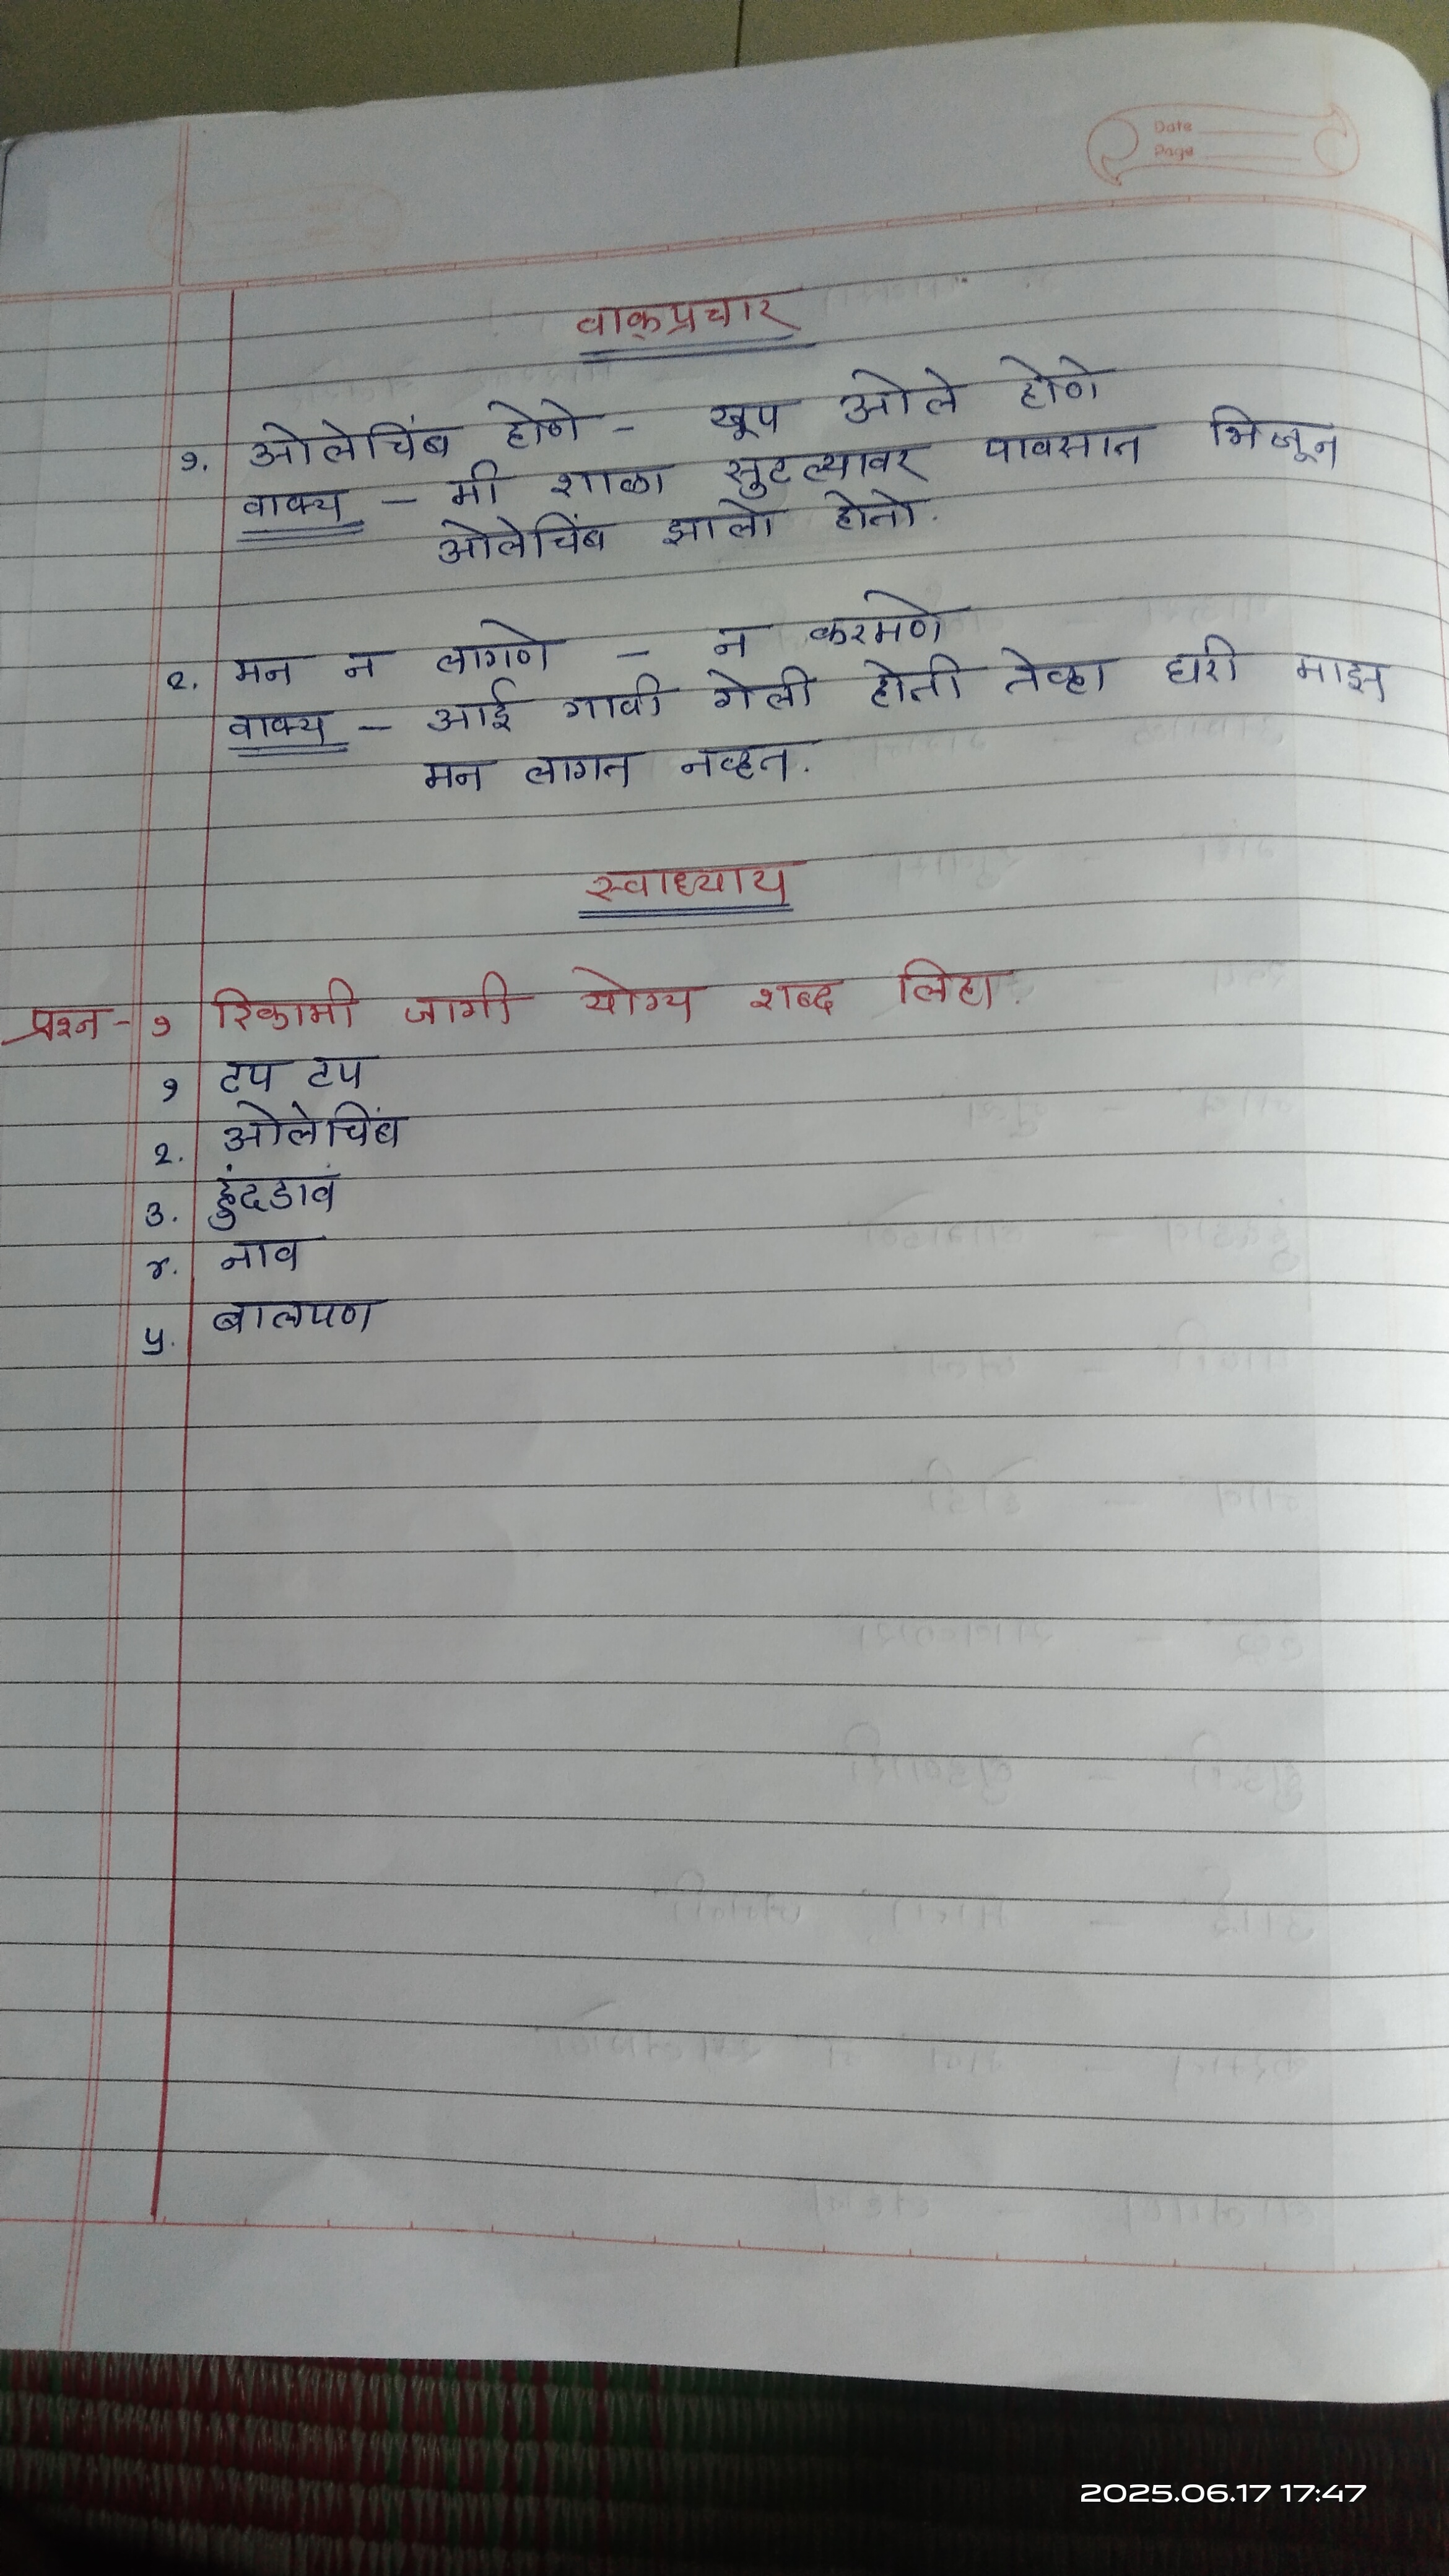 Date
Page
वाक्प्रचार
१. ओलेचिंब होणे – खूप ओले होणे
वाक्य – मी शाळा सुटल्यावर पावसात भिजून
ओलेचिंब झालो होतो.
२. मन न लागणे – न करमणे
वाक्य – आई गावी गेली होती तेव्हा घरी माझ
मन लागत नव्हत.
स्वाध्याय
प्रश्न - १ रिकामी जागी योग्य शब्द लिहा.
१ टप टप
२. ओलेचिंब
३. हुंदडावं
४. नाव
५. बालपण
2025.06.17 17:47